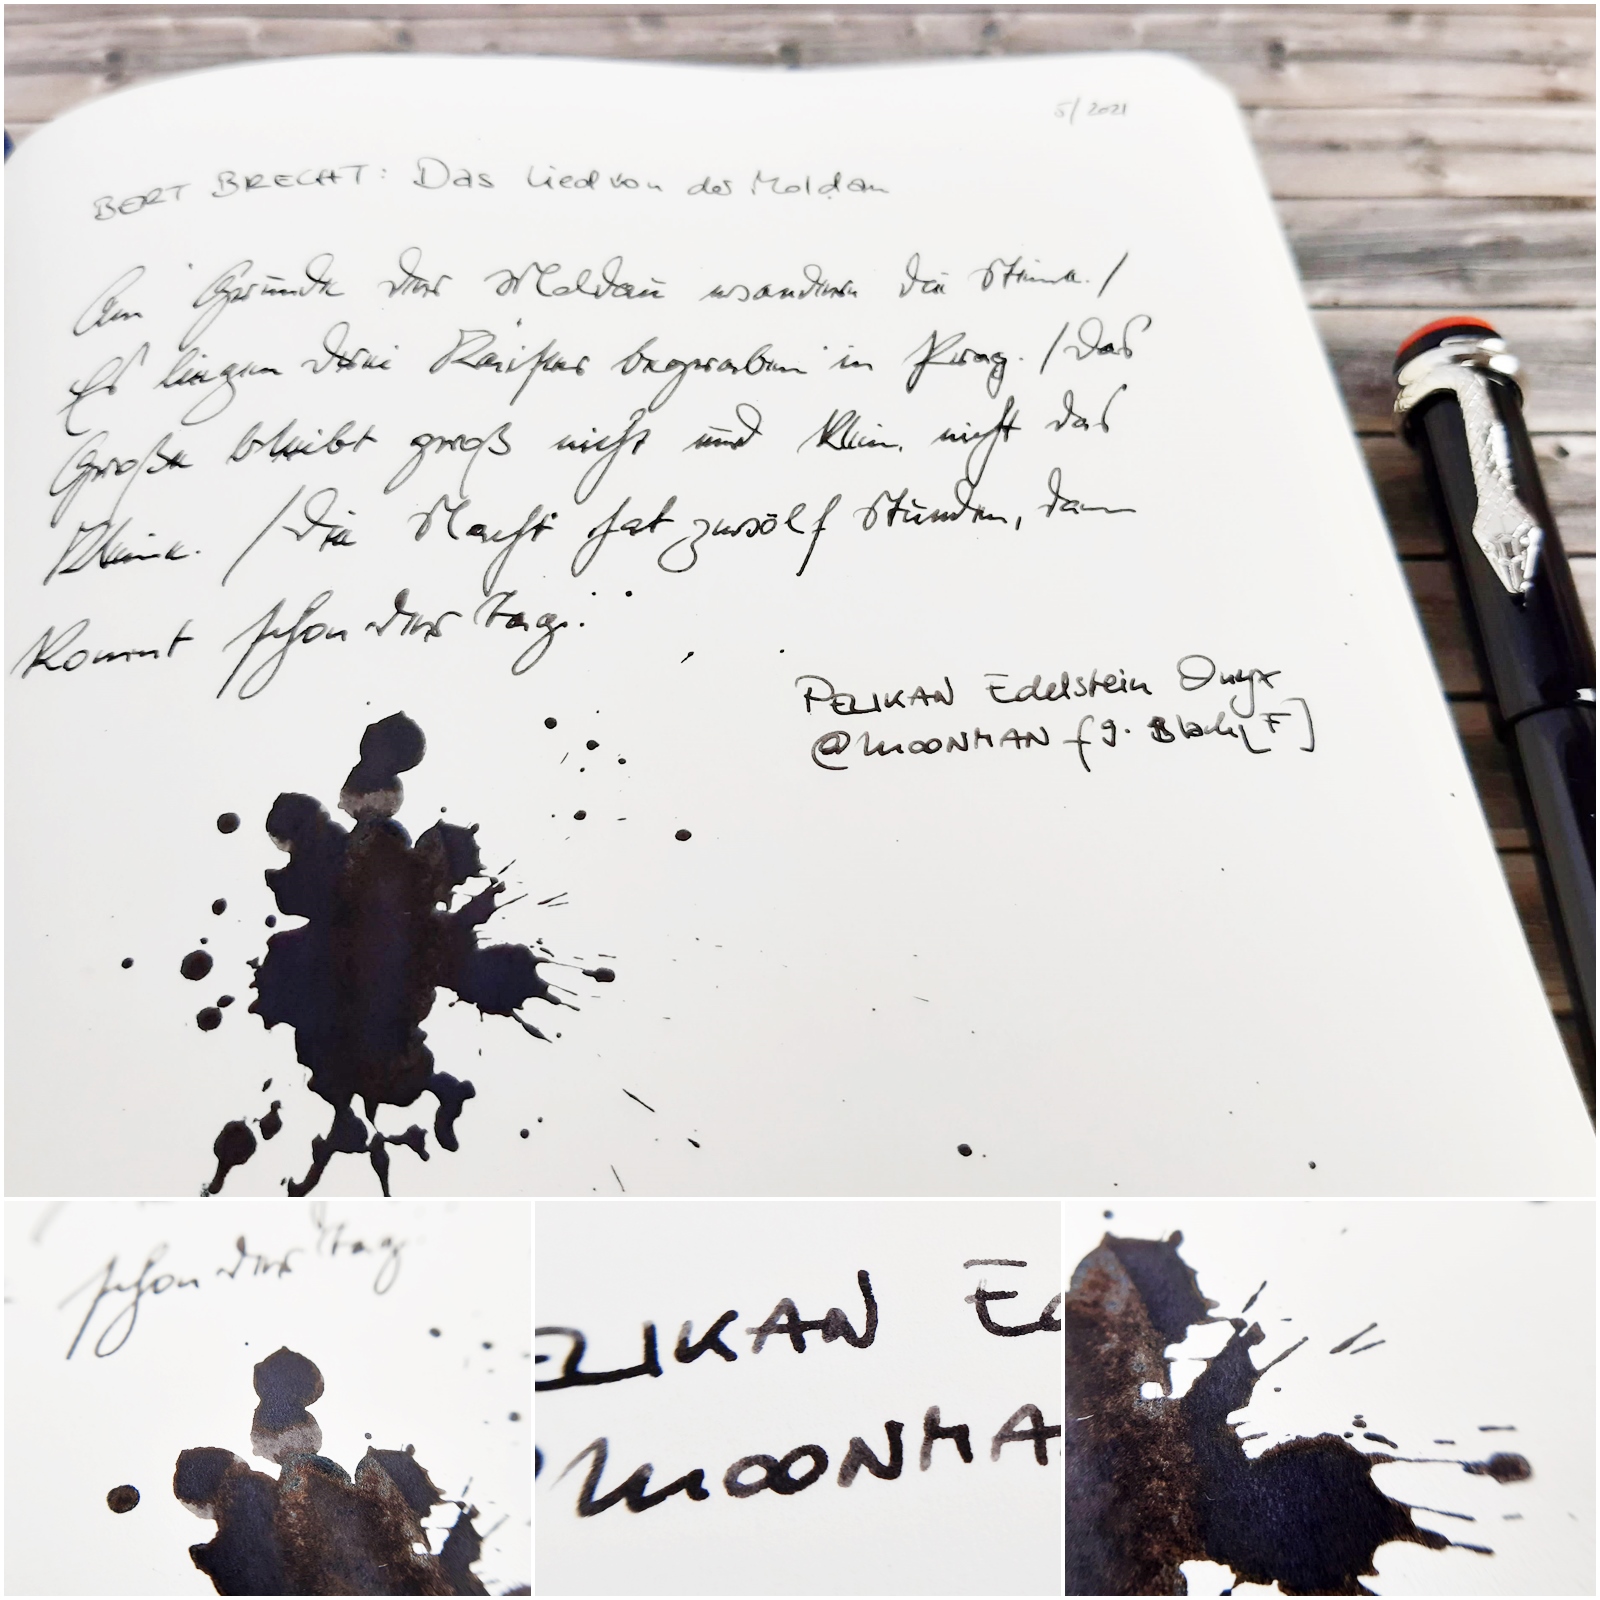 5/2021
BERT BRECHT: Das Lied von der Moldau
Am Grunde der Moldau wandern die Steine. /
Es liegen drei Kaiser begraben in Prag. / Das
Große bleibt groß nicht und klein nicht das
Kleine. / Die Nacht hat zwölf Stunden, dann
kommt schon der Tag.
PELIKAN Edelstein Onyx
@MOONMAN [F]
schon der Tag
ELIKAN Ed
MOONMA